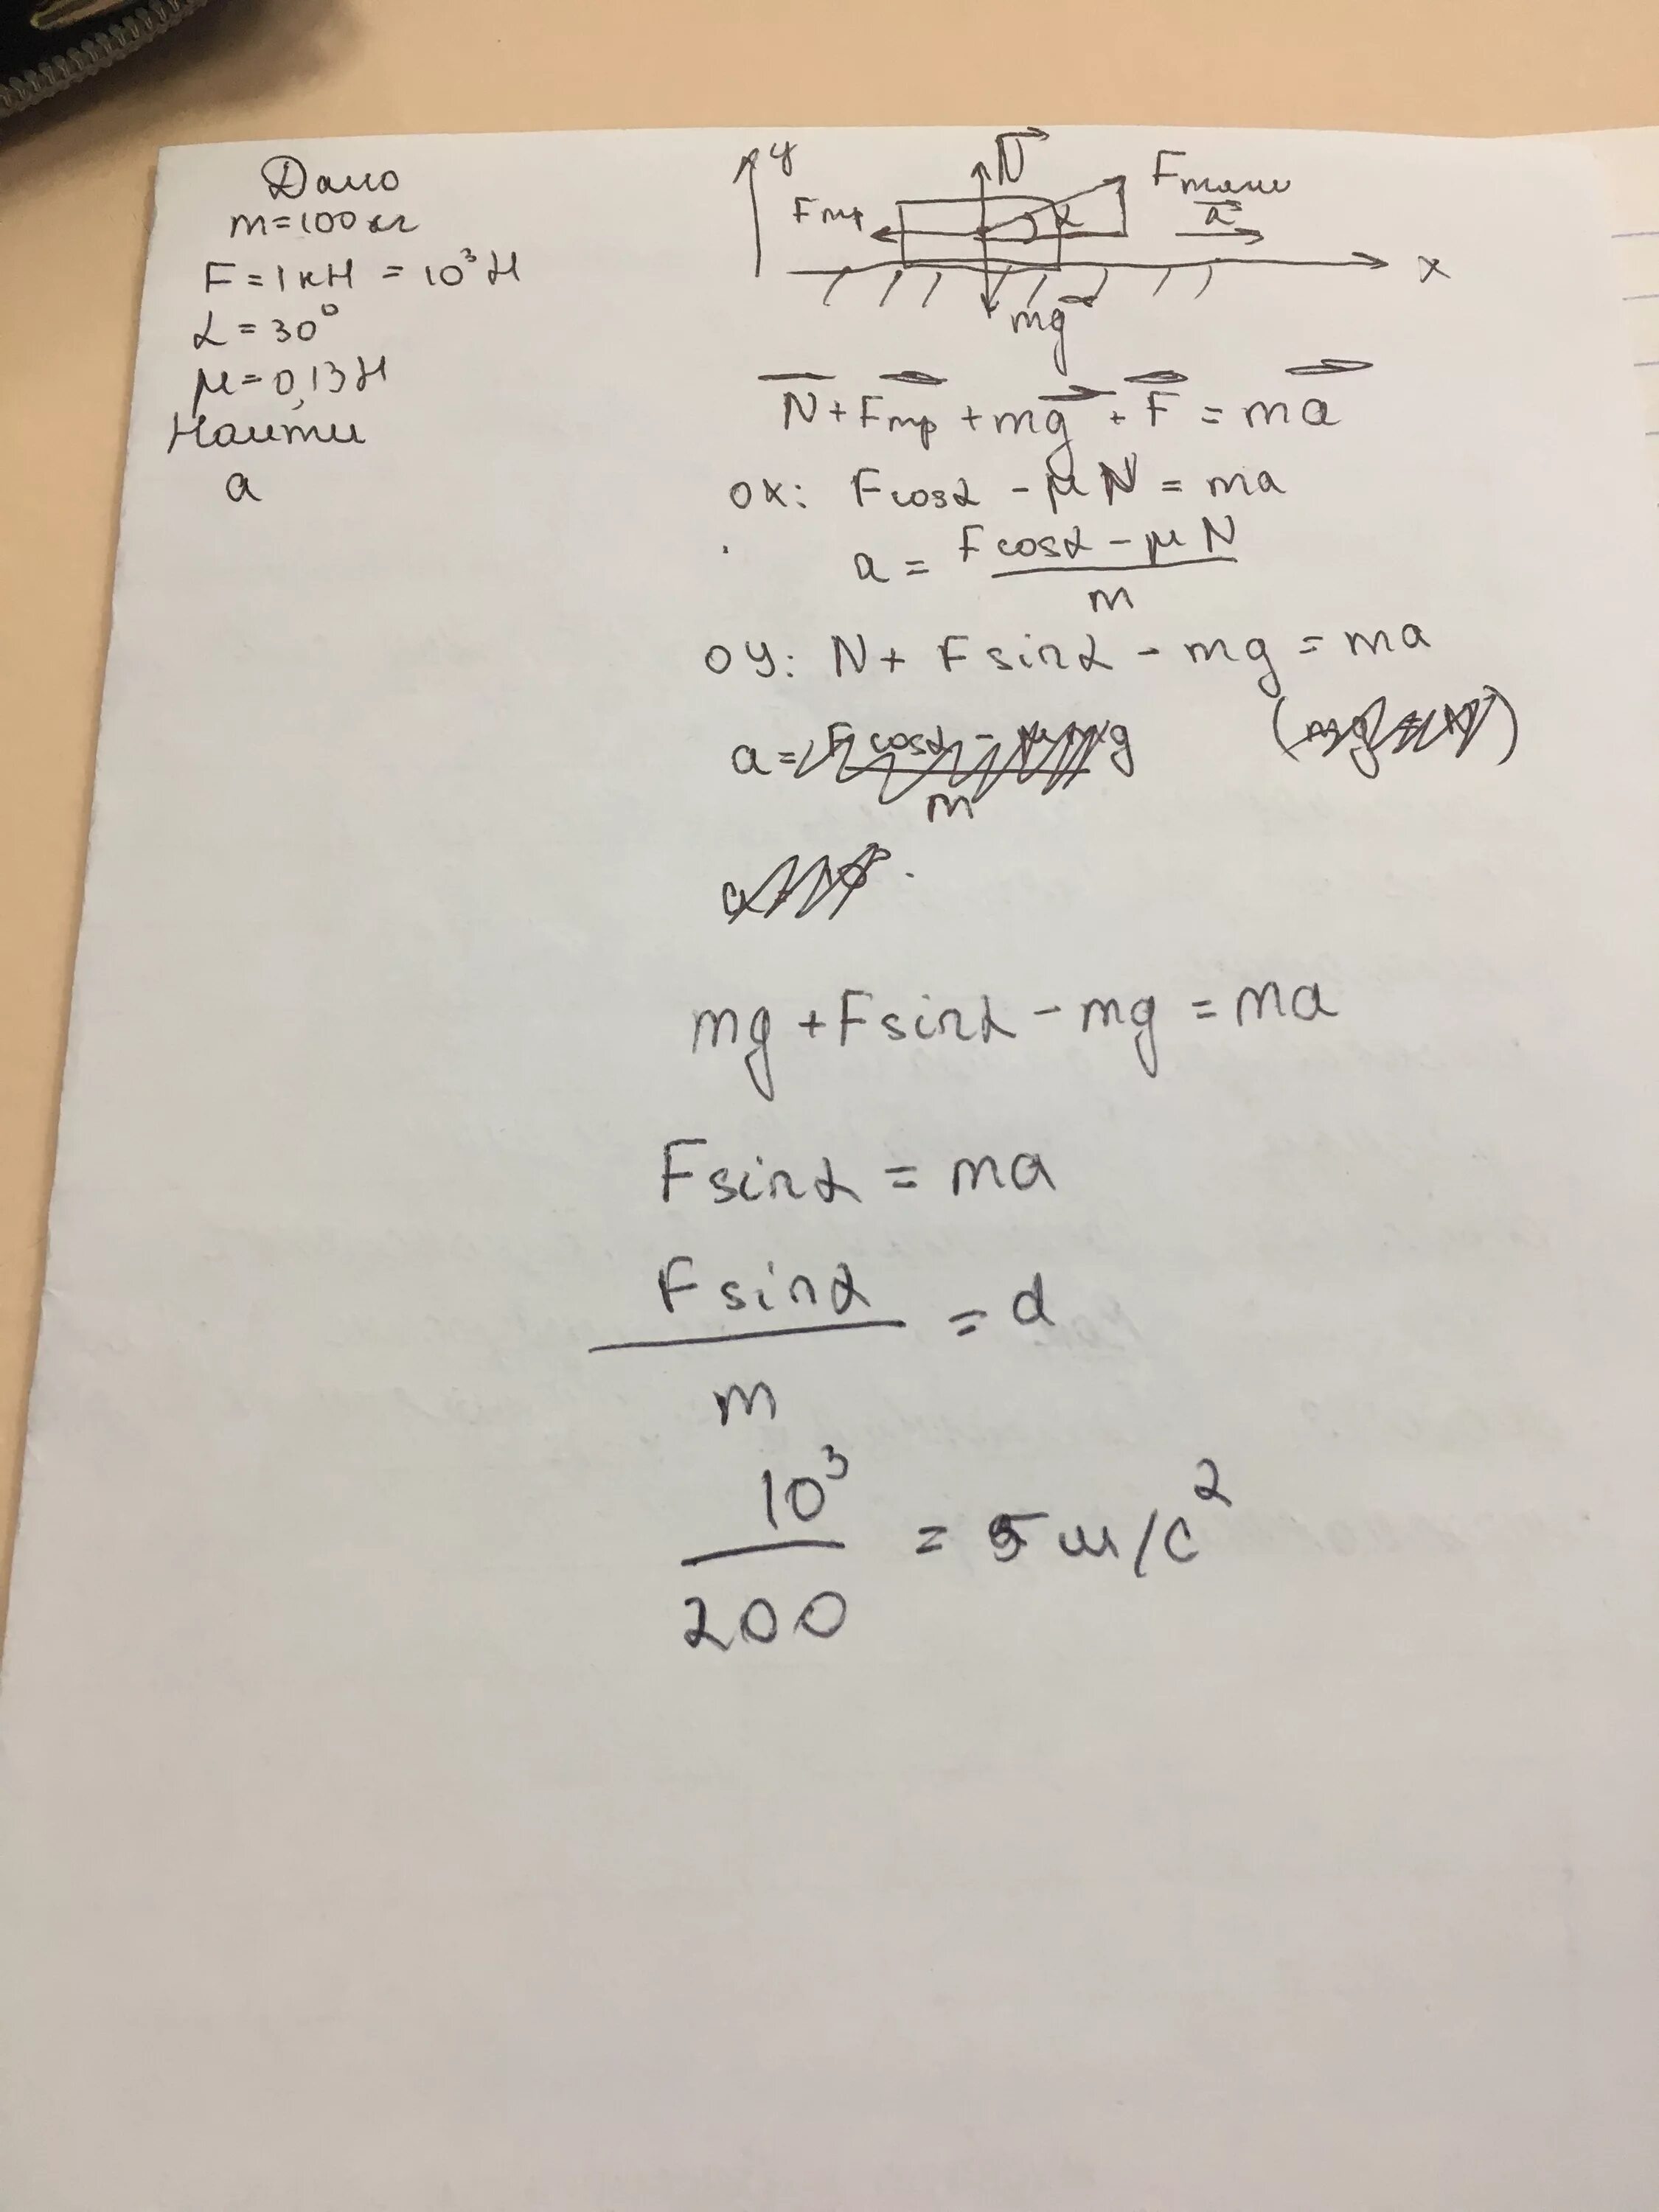 Дано
m=100кг
F=1кН = 10³Н
α=30°
μ=0,13Н
Найти
a
y
N
Fтр
α
Fтяги
a
x
mg
N+Fтр+mg+F=ma
OX: Fcosα - μN = ma
a = Fcosα - μN / m
OY: N+ Fsinα - mg = ma
a= Fcosα - μmg / m
mg +Fsinα - mg = ma
Fsinα = ma
Fsinα / m = a
10³ / 200 = 5 м/с²